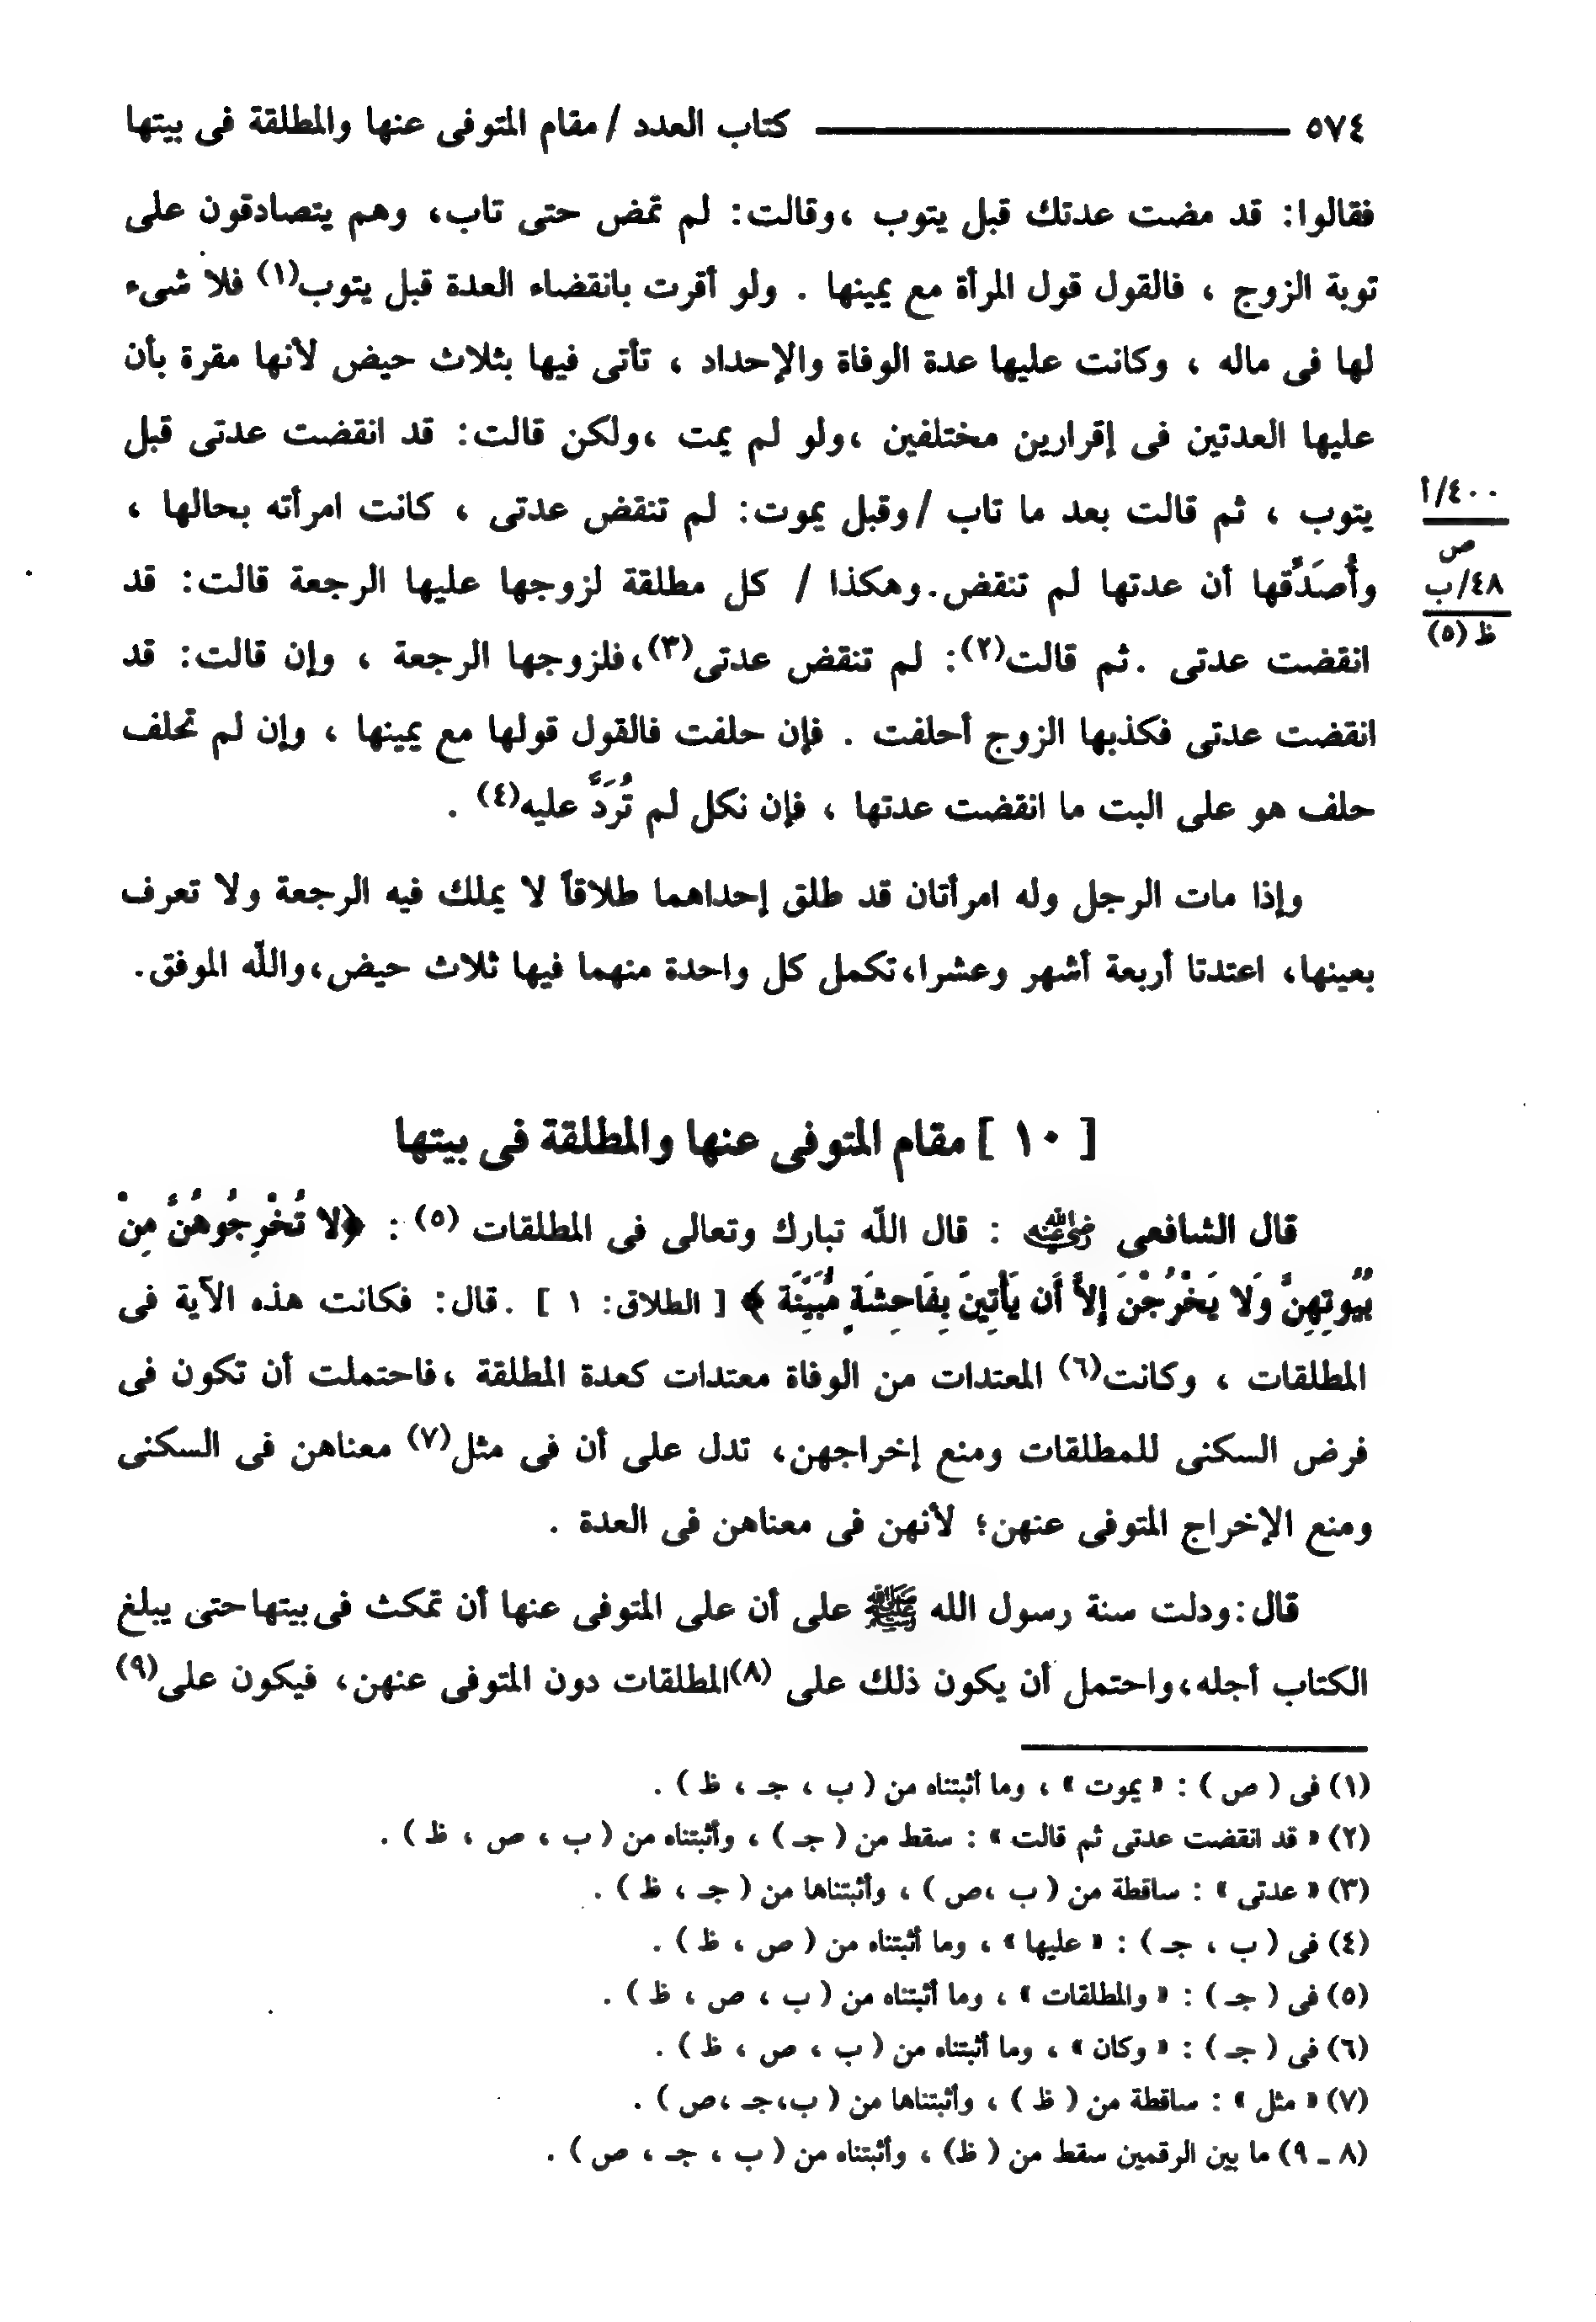 ٥٧٤ ــــــــــ كتاب العدد / مقام المتوفى عنها والمطلقة فى بيتها
فقالوا: قد مضت عدتك قبل يتوب ،وقالت: لم تمض حتى تاب، وهم يتصادقون على
توبة الزوج ، فالقول قول المرأة مع يمينها . ولو أقرت بانقضاء العدة قبل يتوب(١) فلا شىء
لها فى ماله ، وكانت عليها عدة الوفاة والإحداد ، تأتى فيها بثلاث حيض لأنها مقرة بأن
عليها العدتين فى إقرارين مختلفين ،ولو لم يمت ،ولكن قالت: قد انقضت عدتى قبل
يتوب ، ثم قالت بعد ما تاب /وقبل يموت: لم تنقض عدتى ، كانت امرأته بحالها ،
وأُصَدِّقها أن عدتها لم تنقض.وهكذا / كل مطلقة لزوجها عليها الرجعة قالت: قد
انقضت عدتى .ثم قالت(٢): لم تنقض عدتى(٣)،فلزوجها الرجعة ، وإن قالت: قد
انقضت عدتى فكذبها الزوج أحلفت . فإن حلفت فالقول قولها مع يمينها ، وإن لم تحلف
حلف هو على البت ما انقضت عدتها ، فإن نكل لم تُرَدَّ عليه(٤) .
٤٠٠/أ
ص
٤٨/ب
ظ (٥)
وإذا مات الرجل وله امرأتان قد طلق إحداهما طلاقاً لا يملك فيه الرجعة ولا تعرف
بعينها، اعتدتا أربعة أشهر وعشرا،تكمل كل واحدة منهما فيها ثلاث حيض،والله الموفق.
[ ١٠ ] مقام المتوفى عنها والمطلقة فى بيتها
قال الشافعى رضي الله عنه : قال الله تبارك وتعالى فى المطلقات (٥) : ﴿لا تُخْرِجُوهُنَّ مِنْ
بُيُوتِهِنَّ وَلَا يَخْرُجْنَ إِلاَّ أَن يَأْتِينَ بِفَاحِشَةٍ مُّبَيِّنَة ﴾ [ الطلاق: ١ ] .قال: فكانت هذه الآية فى
المطلقات ، وكانت(٦) المعتدات من الوفاة معتدات كعدة المطلقة ،فاحتملت أن تكون فى
فرض السكنى للمطلقات ومنع إخراجهن، تدل على أن فى مثل(٧) معناهن فى السكنى
ومنع الإخراج المتوفى عنهن؛ لأنهن فى معناهن فى العدة .
قال:ودلت سنة رسول الله ﷺ على أن على المتوفى عنها أن تمكث فى بيتها حتى يبلغ
الكتاب أجله،واحتمل أن يكون ذلك على (٨)المطلقات دون المتوفى عنهن، فيكون على(٩)
(١) فى ( ص ) : « يموت » ، وما أثبتناه من ( ب ، جـ ، ظ ) .
(٢) « قد انقضت عدتى ثم قالت » : سقط من ( جـ ) ، وأثبتناه من ( ب ، ص ، ظ ) .
(٣) « عدتى » : ساقطة من ( ب ،ص ) ، وأثبتناها من ( جـ ، ظ ) .
(٤) فى ( ب ، جـ ) : « عليها » ، وما أثبتناه من ( ص ، ظ ) .
(٥) فى ( جـ ) : « والمطلقات » ، وما أثبتناه من ( ب ، ص ، ظ ) .
(٦) فى ( جـ ) : « وكان » ، وما أثبتناه من ( ب ، ص ، ظ ) .
(٧) « مثل » : ساقطة من ( ظ ) ، وأثبتناها من ( ب،جـ ،ص ) .
(٨ ـ ٩) ما بين الرقمين سقط من ( ظ) ، وأثبتناه من ( ب ، جـ ، ص ) .